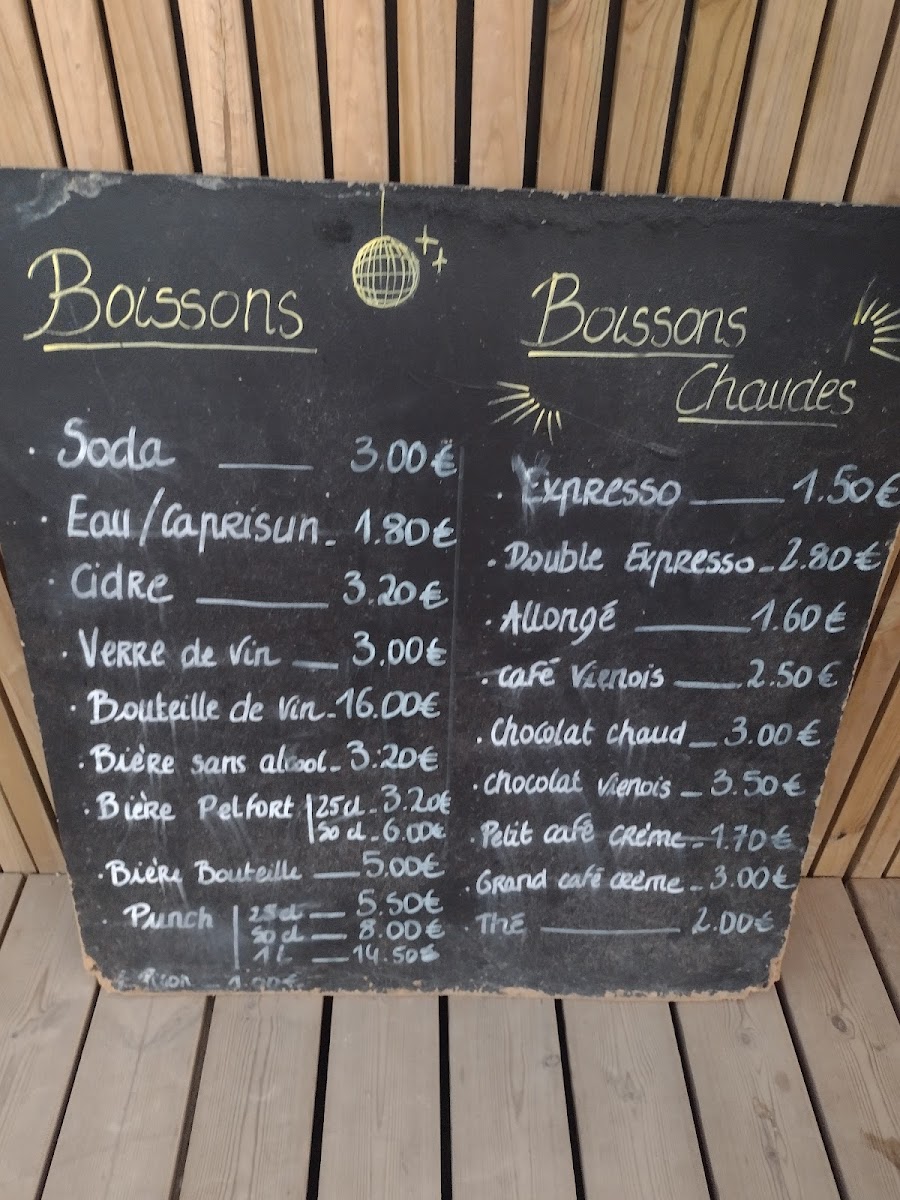 Boissons
Soda 3.00€
Eau/Caprisun 1.80€
Cidre 3.20€
Verre de vin 3.00€
Bouteille de vin 16.00€
Bière sans alcool 3.20€
Bière Pelfort 25cl 3.20€
50 cl 6.00€
Bière Bouteille 5.00€
Punch 25cl 5.50€
50 cl 8.00€
1L 14.50€
Boissons
Chaudes
Expresso 1.50€
Double Expresso 2.80€
Allongé 1.60€
Café Vienois 2.50€
Chocolat chaud 3.00€
Chocolat vienois 3.50€
Petit café crème 1.70€
Grand café crème 3.00€
Thé 2.00€